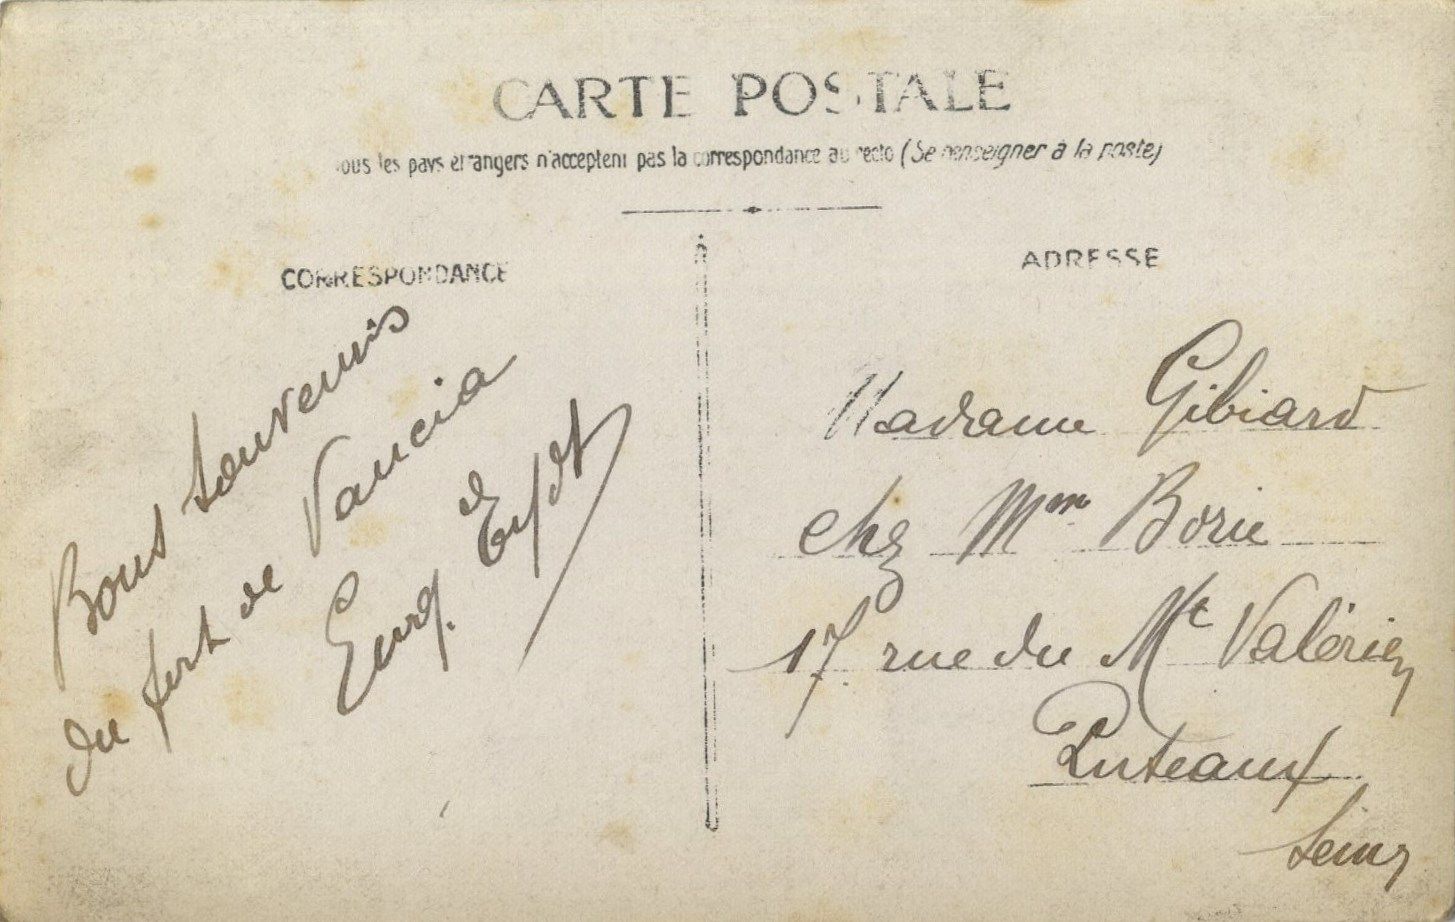 CARTE POSTALE
Tous les pays étrangers n'acceptent pas la correspondance au recto (Se renseigner à la poste)
CORRESPONDANCE
Bons souvenirs
du fort de Vancia
ADRESSE
Madame Gibiard
chez Mme Borie
17 rue du Mt Valérien
Puteaux
Seine